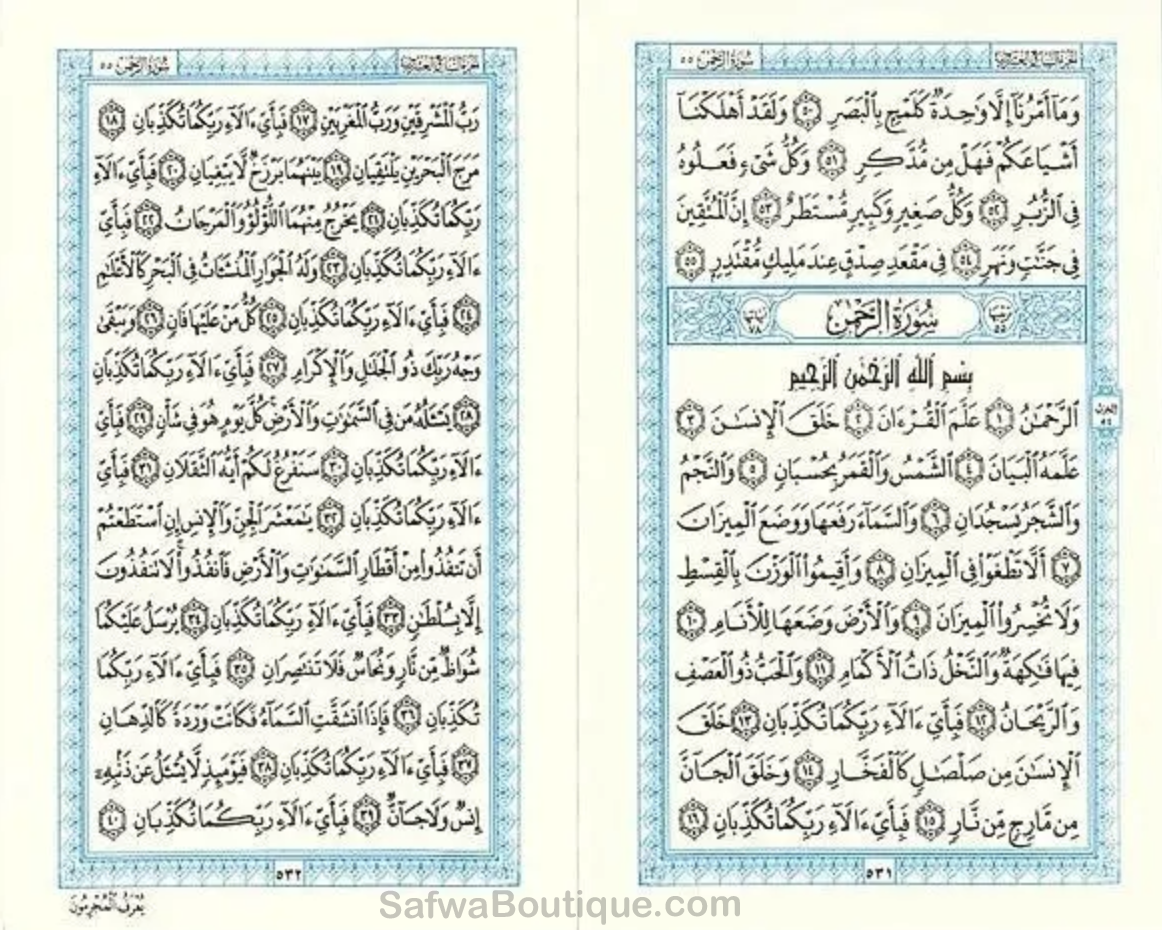 الجزء السابع والعشرون سُورَةُ الرَّحْمٰن ٥٥
وَمَآ أَمْرُنَآ إِلَّا وَٰحِدَةٌ كَلَمْحٍۭ بِٱلْبَصَرِ ٥٠ وَلَقَدْ أَهْلَكْنَآ
أَشْيَاعَكُمْ فَهَلْ مِن مُّدَّكِرٍ ٥١ وَكُلُّ شَىْءٍ فَعَلُوهُ
فِى ٱلزُّبُرِ ٥٢ وَكُلُّ صَغِيرٍ وَكَبِيرٍ مُّسْتَطَرٌ ٥٣ إِنَّ ٱلْمُتَّقِينَ
فِى جَنَّٰتٍ وَنَهَرٍ ٥٤ فِى مَقْعَدِ صِدْقٍ عِندَ مَلِيكٍ مُّقْتَدِرٍۭ ٥٥
ترتيبها ٥٥ سُورَةُ الرَّحْمٰن آياتها ٧٨
بِسْمِ ٱللَّهِ ٱلرَّحْمَٰنِ ٱلرَّحِيمِ
ٱلرَّحْمَٰنُ ١ عَلَّمَ ٱلْقُرْءَانَ ٢ خَلَقَ ٱلْإِنسَٰنَ ٣
الحزب ٥٤
عَلَّمَهُ ٱلْبَيَانَ ٤ ٱلشَّمْسُ وَٱلْقَمَرُ بِحُسْبَانٍ ٥ وَٱلنَّجْمُ
وَٱلشَّجَرُ يَسْجُدَانِ ٦ وَٱلسَّمَآءَ رَفَعَهَا وَوَضَعَ ٱلْمِيزَانَ
٧ أَلَّا تَطْغَوْا۟ فِى ٱلْمِيزَانِ ٨ وَأَقِيمُوا۟ ٱلْوَزْنَ بِٱلْقِسْطِ
وَلَا تُخْسِرُوا۟ ٱلْمِيزَانَ ٩ وَٱلْأَرْضَ وَضَعَهَا لِلْأَنَامِ ١٠
فِيهَا فَٰكِهَةٌ وَٱلنَّخْلُ ذَاتُ ٱلْأَكْمَامِ ١١ وَٱلْحَبُّ ذُو ٱلْعَصْفِ
وَٱلرَّيْحَانُ ١٢ فَبِأَىِّ ءَالَآءِ رَبِّكُمَا تُكَذِّبَانِ ١٣ خَلَقَ
ٱلْإِنسَٰنَ مِن صَلْصَٰلٍ كَٱلْفَخَّارِ ١٤ وَخَلَقَ ٱلْجَآنَّ
مِن مَّارِجٍ مِّن نَّارٍ ١٥ فَبِأَىِّ ءَالَآءِ رَبِّكُمَا تُكَذِّبَانِ ١٦
٥٣١
الجزء السابع والعشرون سُورَةُ الرَّحْمٰن ٥٥
رَبُّ ٱلْمَشْرِقَيْنِ وَرَبُّ ٱلْمَغْرِبَيْنِ ١٧ فَبِأَىِّ ءَالَآءِ رَبِّكُمَا تُكَذِّبَانِ ١٨
مَرَجَ ٱلْبَحْرَيْنِ يَلْتَقِيَانِ ١٩ بَيْنَهُمَا بَرْزَخٌ لَّا يَبْغِيَانِ ٢٠ فَبِأَىِّ ءَالَآءِ
رَبِّكُمَا تُكَذِّبَانِ ٢١ يَخْرُجُ مِنْهُمَا ٱللُّؤْلُؤُ وَٱلْمَرْجَانُ ٢٢ فَبِأَىِّ
ءَالَآءِ رَبِّكُمَا تُكَذِّبَانِ ٢٣ وَلَهُ ٱلْجَوَارِ ٱلْمُنشَـَٔاتُ فِى ٱلْبَحْرِ كَٱلْأَعْلَٰمِ
٢٤ فَبِأَىِّ ءَالَآءِ رَبِّكُمَا تُكَذِّبَانِ ٢٥ كُلُّ مَنْ عَلَيْهَا فَانٍ ٢٦ وَيَبْقَىٰ
وَجْهُ رَبِّكَ ذُو ٱلْجَلَٰلِ وَٱلْإِكْرَامِ ٢٧ فَبِأَىِّ ءَالَآءِ رَبِّكُمَا تُكَذِّبَانِ
٢٨ يَسْـَٔلُهُۥ مَن فِى ٱلسَّمَٰوَٰتِ وَٱلْأَرْضِ كُلَّ يَوْمٍ هُوَ فِى شَأْنٍ ٢٩ فَبِأَىِّ
ءَالَآءِ رَبِّكُمَا تُكَذِّبَانِ ٣٠ سَنَفْرُغُ لَكُمْ أَيُّهَ ٱلثَّقَلَانِ ٣١ فَبِأَىِّ
ءَالَآءِ رَبِّكُمَا تُكَذِّبَانِ ٣٢ يَٰمَعْشَرَ ٱلْجِنِّ وَٱلْإِنسِ إِنِ ٱسْتَطَعْتُمْ
أَن تَنفُذُوا۟ مِنْ أَقْطَارِ ٱلسَّمَٰوَٰتِ وَٱلْأَرْضِ فَٱنفُذُوا۟ لَا تَنفُذُونَ
إِلَّا بِسُلْطَٰنٍ ٣٣ فَبِأَىِّ ءَالَآءِ رَبِّكُمَا تُكَذِّبَانِ ٣٤ يُرْسَلُ عَلَيْكُمَا
شُوَاظٌ مِّن نَّارٍ وَنُحَاسٌ فَلَا تَنتَصِرَانِ ٣٥ فَبِأَىِّ ءَالَآءِ رَبِّكُمَا
تُكَذِّبَانِ ٣٦ فَإِذَا ٱنشَقَّتِ ٱلسَّمَآءُ فَكَانَتْ وَرْدَةً كَٱلدِّهَانِ
٣٧ فَبِأَىِّ ءَالَآءِ رَبِّكُمَا تُكَذِّبَانِ ٣٨ فَيَوْمَئِذٍ لَّا يُسْـَٔلُ عَن ذَنۢبِهِۦٓ
إِنسٌ وَلَا جَآنٌّ ٣٩ فَبِأَىِّ ءَالَآءِ رَبِّكُمَا تُكَذِّبَانِ ٤٠
٥٣٢
يُعْرَفُ ٱلْمُجْرِمُونَ
SafwaBoutique.com